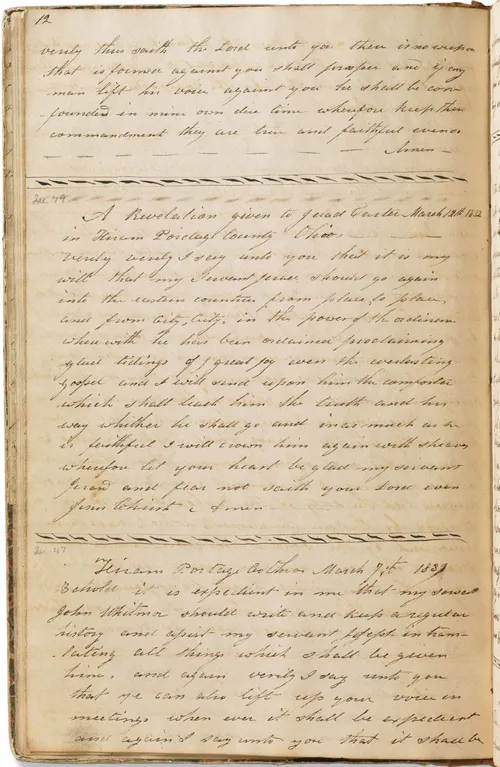 12
verily thus saith the Lord unto you there is no weapon
that is formed against you shall prosper and if any
man lift his voice against you he shall be con-
founded in mine own due time wherefore keep these
commandment they are true and faithful even so
Amen
Sec 79
A Revelation given to Jerad Carter March 12th 1832
in Hiram Portage County Ohio
verily verily I say unto you that it is my
will that my servant Jerad should go again
into the eastern countries from place to place
and from City, City, in the power of the ordinence
wherewith he has been ordained proclaiming
glad tidings of great joy even the everlasting
gospel and I will send upon him the comforter
which shall teach him the truth and the
way whither he shall go and in as much as he
is faithful I will crown him again with sheaves
wherefore let your heart be glad my servant
Jerad and fear not saith your Lord even
Jesus Christ Amen
Sec 47
Hiram Portage Co Ohio March 7th 1831
Behold it is expedient in me that my servant
John Whitmer should write and keep a regular
history and assist my servant Joseph in trans-
lating all things which shall be given
him, and again verily I say unto you
that ye can also lift up your voice in
meetings when ever it shall be expedient
and again I say unto you that it shall be